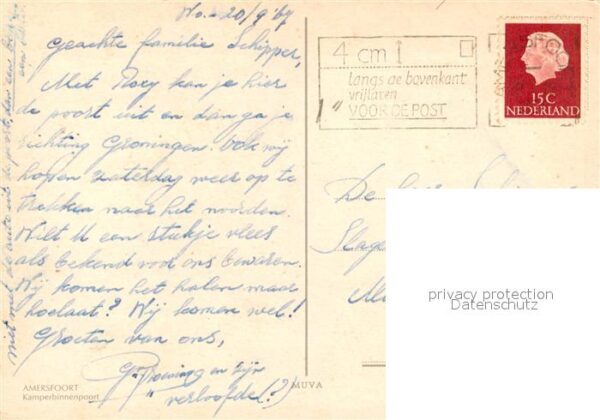 Wo. 20/9 '67
Geachte familie Schipper,
Met Roxy kan je hier
de poort uit en dan ga je
richting Groningen. Ook wij
hopen zaterdag weer op te
trekken naar het noorden.
Wilt U een stukje vlees
als bekend voor ons bewaren.
Wij komen het halen maar
hoelaat? Wij komen wel!
Groeten van ons,
en zijn
verloofde (?)
niet met de auto uit de poort,
AMERSFOORT
Kamperbinnenpoort
MUVA
4 cm
langs de bovenkant
vrijlaten
VOOR DE POST
15 C
NEDERLAND
De
privacy protection
Datenschutz